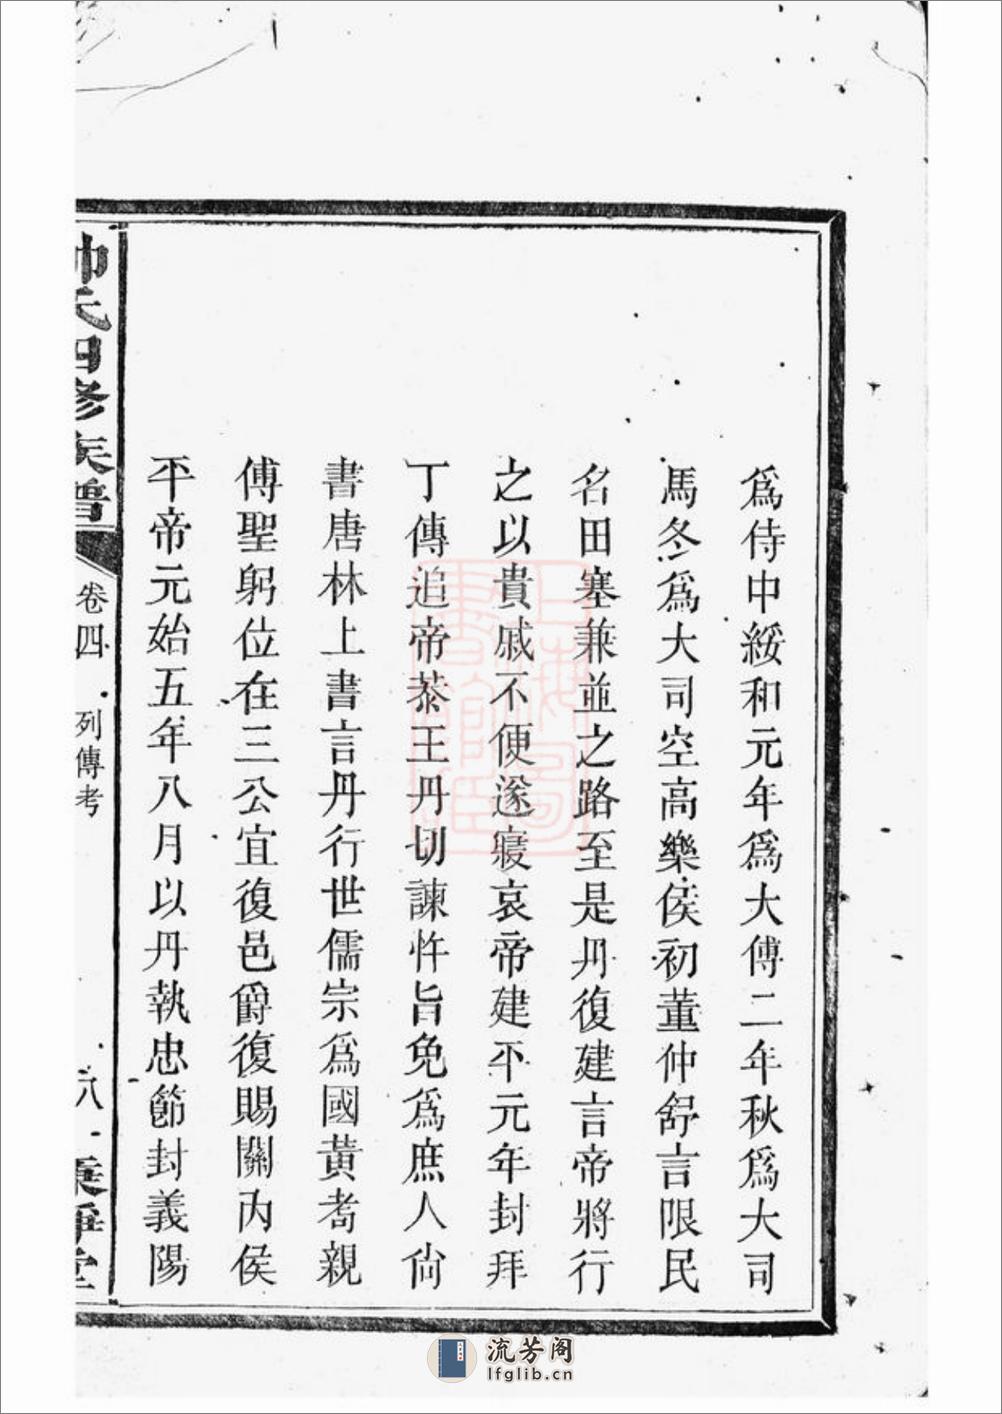 爲侍中綏和元年爲大傅二年秋爲大司
馬冬爲大司空高樂侯初董仲舒言限民
名田塞兼並之路至是丹復建言帝將行
之以貴戚不便遂寢哀帝建平元年封拜
丁傅追帝恭王丹切諫忤旨免爲庶人尙
書唐林上書言丹行世儒宗爲國黃耇親
傅聖躬位在三公宜復邑爵復賜關內侯
平帝元始五年八月以丹執忠節封義陽
帥氏四修族譜
卷四
列傳考
八
秉彝堂
上海圖書館藏
流芳阁
lfglib.cn